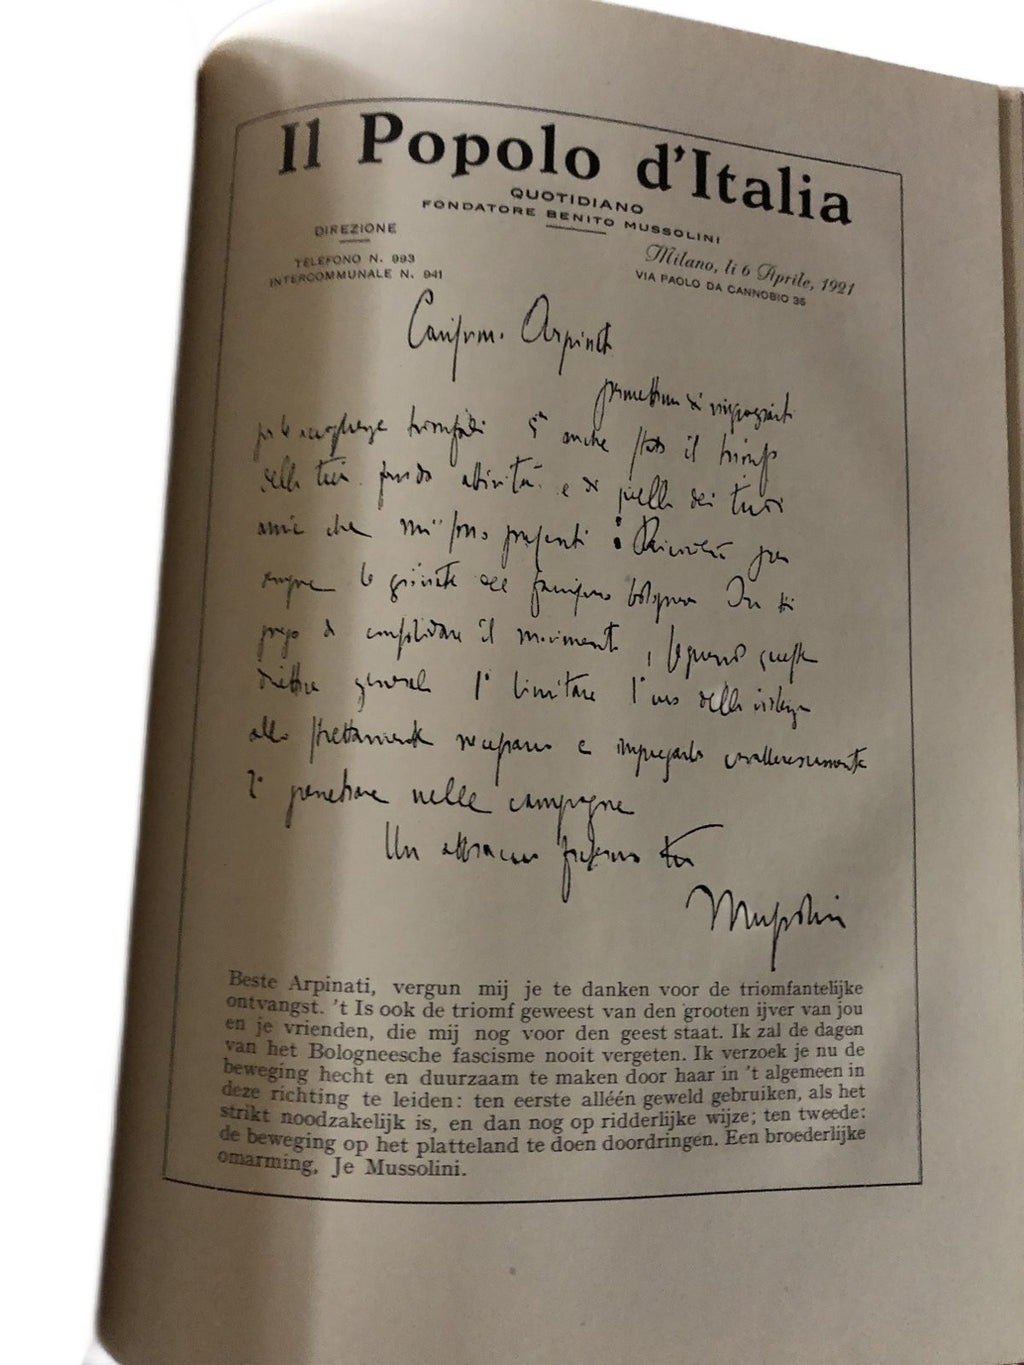 Il Popolo d'Italia
QUOTIDIANO
FONDATORE BENITO MUSSOLINI
DIREZIONE
TELEFONO N. 993
INTERCOMMUNALE N. 941
Milano, li 6 Aprile, 1921
VIA PAOLO DA CANNOBIO 35
Arpinati
permettimi di ringraziarti
per le accoglienze trionfali È anche stato il trionfo
della tua attività e di quella dei tuoi
amici che mi sono presenti
le giornate del fascismo bolognese Ora ti
prego di consolidare il movimento, seguendo queste
direttive generali 1° limitare l'uso della violenza
allo strettamente necessario e impiegarla cavallerescamente
2° penetrare nelle campagne
Un abbraccio fraterno tuo
Mussolini
Beste Arpinati, vergun mij je te danken voor de triomfantelijke
ontvangst. 't Is ook de triomf geweest van den grooten ijver van jou
en je vrienden, die mij nog voor den geest staat. Ik zal de dagen
van het Bologneesche fascisme nooit vergeten. Ik verzoek je nu de
beweging hecht en duurzaam te maken door haar in 't algemeen in
deze richting te leiden: ten eerste alléén geweld gebruiken, als het
strikt noodzakelijk is, en dan nog op ridderlijke wijze; ten tweede:
de beweging op het platteland te doen doordringen. Een broederlijke
omarming, Je Mussolini.